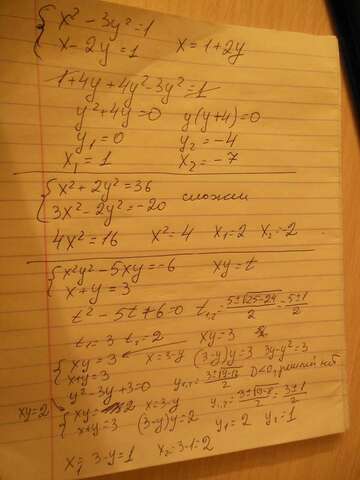 { x² - 3y² = 1
x - 2y = 1    x = 1 + 2y
1 + 4y + 4y² - 3y² = 1
y² + 4y = 0    y(y+4) = 0
y₁ = 0    y₂ = -4
x₁ = 1    x₂ = -7
{ x² + 2y² = 36
3x² - 2y² = -20    сложим
4x² = 16    x² = 4    x₁ = 2    x₂ = -2
{ x²y² - 5xy = -6    xy = t
x + y = 3
t² - 5t + 6 = 0    t₁,₂ = (5±√25-24)/2 = (5±1)/2
t₁ = 3    t₂ = 2    xy = 3
{ xy = 3    x = 3-y    (3-y)y = 3    3y - y² = 3
x + y = 3
y² - 3y + 3 = 0    y₁,₂ = (3±√9-12)/2    D<0, решений нет
xy = 2    { xy = 2    x = 3-y    y₁,₂ = (3±√9-8)/2 = (3±1)/2
x + y = 3    (3-y)y = 2    y₁ = 2    y₂ = 1
x₁ = 3-y = 1    x₂ = 3-1 = 2